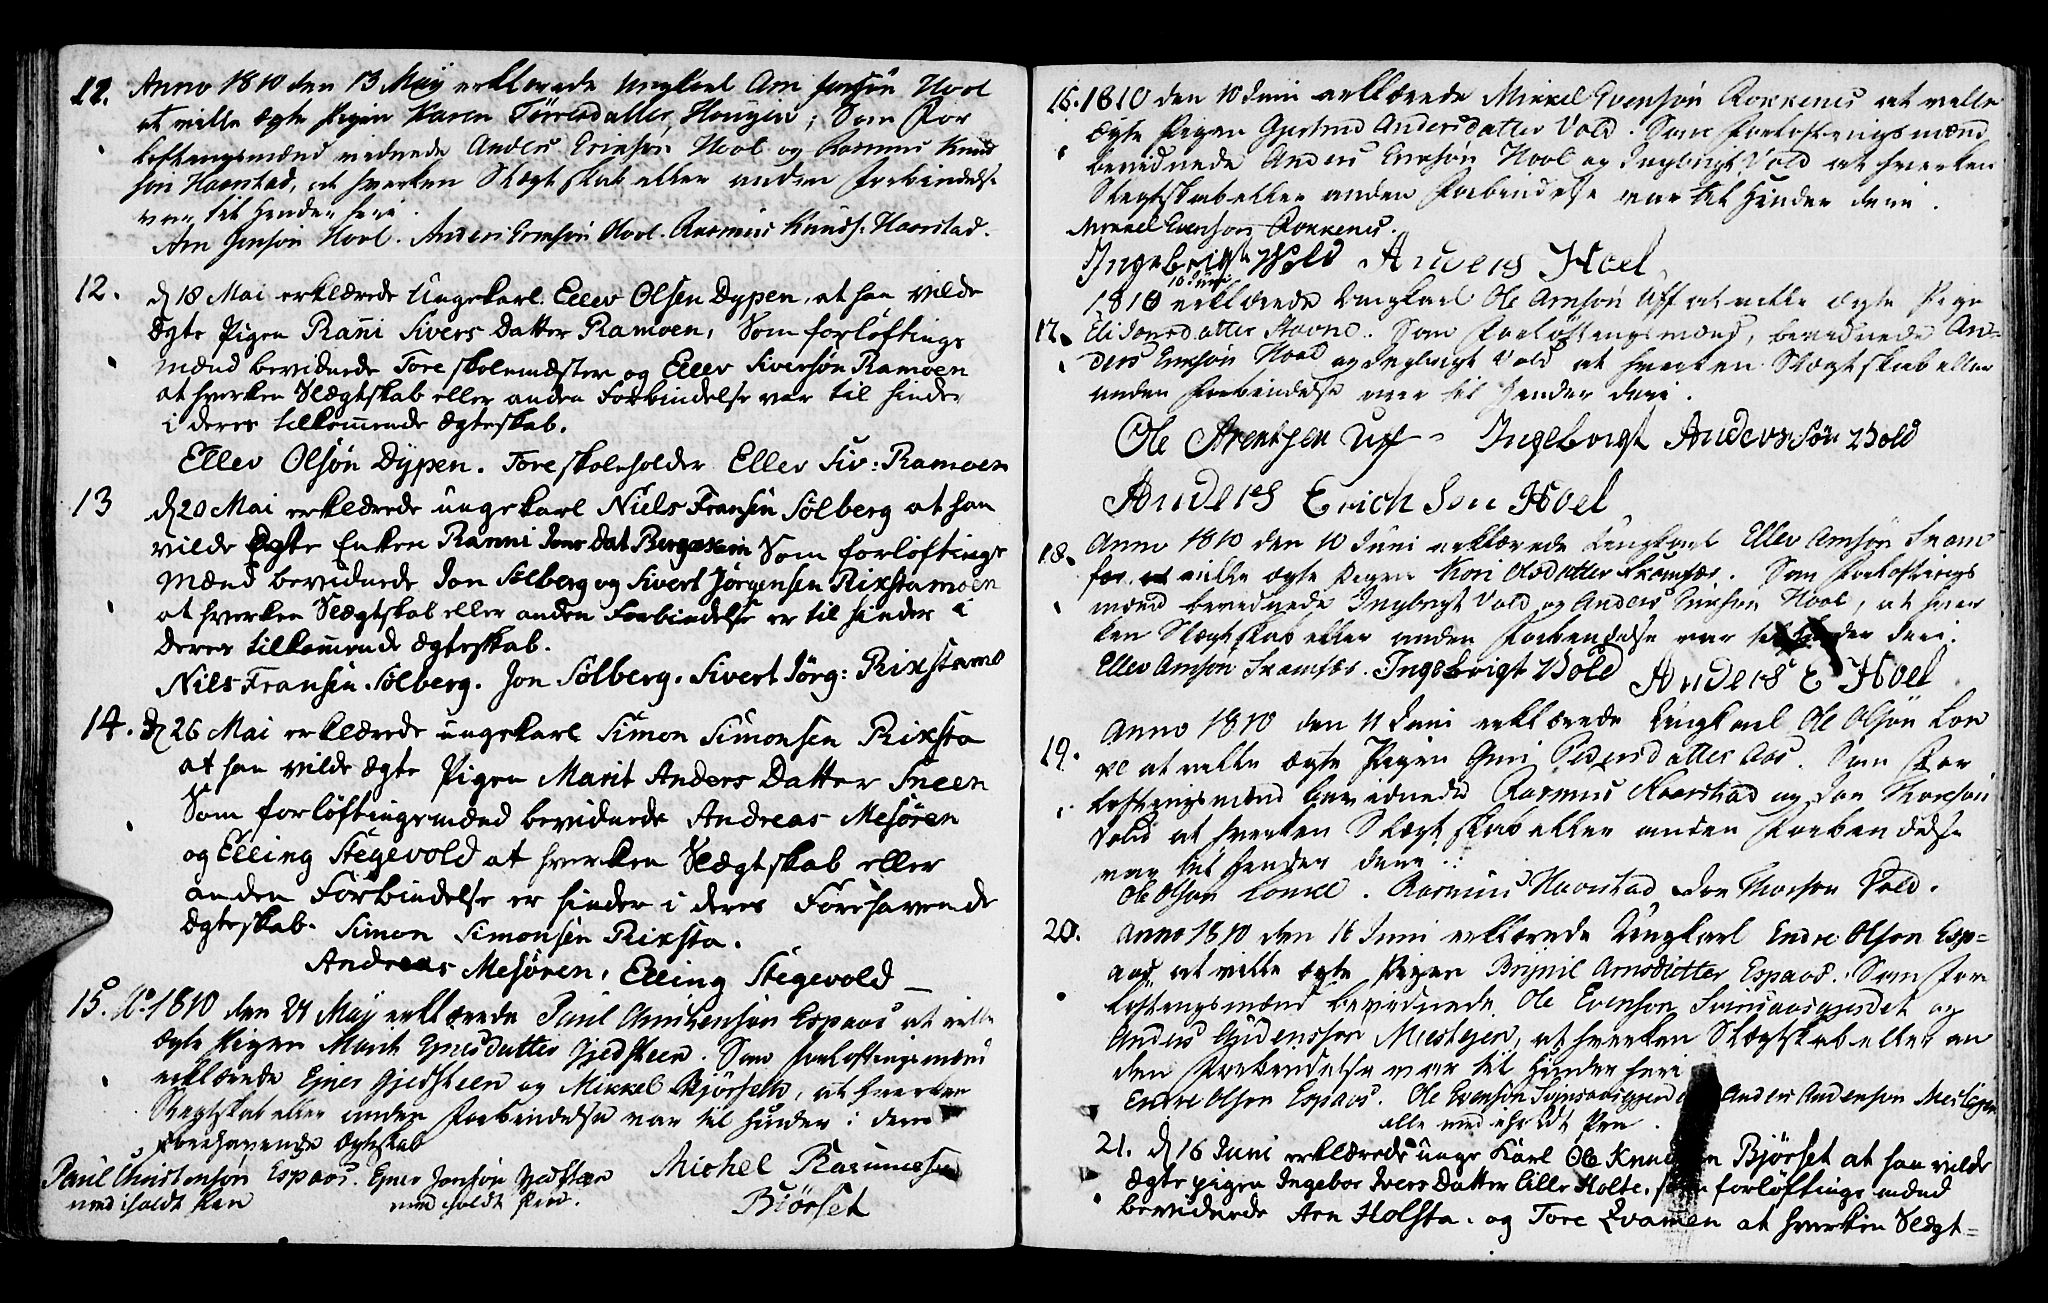 11. Anno 1810 den 13 Maÿ erklærede Ungkarl Arn Jonsøn Hool
at ville ægte Pigen Karen Tørresdatter Hougen; Som For
løftningsmænd vidnede Anders Erichsøn Hool og Rasmus Knud
søn Haarstad, at hverken Slægtskab eller anden Forbindelse
var til Hinder heri.
Arn Jonsøn Hool. Anders Ericsøn Hool. Rasmus Knuds. Haarstad.
12. d 18 Mai erklærede Ungekarl Ellev Olsen Dypen, at han vilde
ægte Pigen Rañi Sivers Datter Ramoen, Som forløftings
mænd bevidnede Tore skolemæster og Ellev Siversøn Ramoen
at hverken Slægtskab eller anden Forbindelse var til hinder
i deres tilkom̄ende ægteskab.
Ellev Olsøn Dypen. Tore skoleholder Ellev Siv: Ramoen
13 d 20 Mai erklærede ungekarl Niels Fransen Solberg at han
vilde Ægte Enken Ranni Jons Dat Som forløftings
Mænd bevidnede Jon Solberg og Sivert Jørgensen Rixstamoen
at hverken Slægtskab eller anden Forbindelse er til hinder i
deres tilkom̄ende ægteskab.
Nils Fransen Solberg. Jon Solberg. Sivert Jörg: Rixstamo
14. d 26 Mai erklærede ungekarl Simon Simonsen Rixsta
at han vilde ægte Pigen Marit Anders Datter Sneen
Som forløftingsmænd bevidnede Andreas Mesøren
og Elling Stegevold at hverken Slægtskab eller
anden Forbindelse er hinder i deres Forehavende
ægteskab. Simon Simonsen Rixsta.
Andreas Mesøren, Elling Stegevold
15. Ao 1810 den 27 Maÿ erklærede Paul Christensøn Espaas at ville
ægte Pigen Marit Ejnersdatter Gjedsteen. Som forløftningsmænd
erklærede Ejner Gjedsteen og Mikkel Bjørseth, at hverken
Slægtskab eller anden Forbindelse var til Hinder i dere
forehavende Ægteskab
Paul Christensøn Espaas. Ejner Jonsøn Gjedsteen Michel Rasmussen
med iholdt Pen med iholdt Pen. Biørset
16. 1810 den 10 Juni erklærede Mikkel Evensøn Rokkenes at ville
ægte Pigen Gjertrud Andersdatter Vold. Som Forløftningsmænd
bevidnede Anders Ericsøn Hool og Ingbrigt Vold at hverken
Slægtskab eller anden Forbindelse var til Hinder deri.
Mikkel Evensøn Rokkenes.
Ingebrigt Wold Anders Hoel
10 Juni
1810 erklærede Ungkarl Ole Arnsøn Uff at ville ægte Pige
17. Eli Jonsdatter Stavne. Som Forløftningsmænd, bevidnede An-
ders Ericsøn Hool og Ingbrigt Vold at hverken Slægtskab eller
anden Forbindelse var til Hinder deri.
Ole Arentsen Uff - Ingeborigt AndersSøn Wold
Anders Erich Sen Hoel
18. Anno 1810 den 10 Juni erklærede Ungkarl Ellev Arnsøn Kram
at ville ægte Pigen Kari Olsdatter Som Forløftnings
mænd bevidnede Ingbrigt Vold og Anders Ericsøn Hool, at hver
ken Slægtskab eller anden Forbindelse var til Hinder deri.
Ellev Arnsøn Ingebrigt Wold Anders E Hoel
19. Anno 1810 den 11 Juni erklærede Ungkarl Ole Olsøn Lon
at ville ægte Pigen Guri Pedersdatter Aas. Som For
løftningsmænd bevidnede Rasmus Haarstad og Jon Thoresøn
Vold at hverken Slægtskab eller anden Forbindelse
var til Hinder deri.
Ole Olsøn Rasmus Haarstad Jon Thoresøn Vold.
20. Anno 1810 den 16 Juni erklærede Ungkarl Endre Olsøn Esp=
aas at ville ægte Pigen Brynil Arnsdatter Espaas. Som For
løftningsmænd bevidnede Ole Evensøn og
Anders at hverken Slægtskab eller an
den Forbindelse var til Hinder heri
Endre Olsøn Espaas. Ole Evensøn Anders
alle med iholdt Pen.
21. d 16 Juni erklærede unge Karl Ole Knudsen Bjørset at han vilde
ægte pigen Ingebor Ivers Datter Lille Holte, som forløftings mænd
bevidnede Arn Holsta. og Tore Qvamen at hverken Slægt=